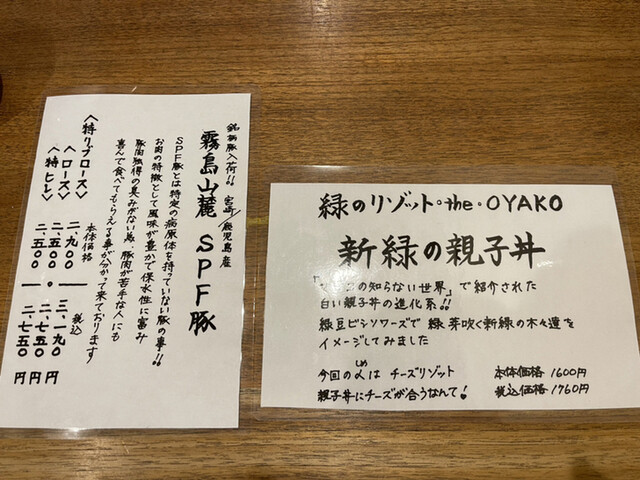 銘柄豚入荷!! 宮崎/鹿児島産
霧島山麓 SPF豚
SPF豚とは特定の病原体を持っていない豚の事!!
お肉の特徴として風味が豊かで保水性に富み
豚肉独得の臭みがない為、豚肉が苦手な人にも
喜んで食べてもらえる事が分かって来ております
本体価格 税込
〈特リブロース〉 二、九〇〇 ー 三、一九〇円
〈ロース〉 二、五〇〇 ー 二、七五〇円
〈特ヒレ〉 二、五〇〇 ー 二、七五〇円
緑のリゾット・the・OYAKO
新緑の親子丼
の知らない世界」で紹介された
白い親子丼の進化系!!
緑豆ビシソワーズで 緑芽吹く新緑の木々達を
イメージしてみました
今回の〆はチーズリゾット
しめ
親子丼にチーズが合うなんて!
本体価格 1600円
税込価格 1760円